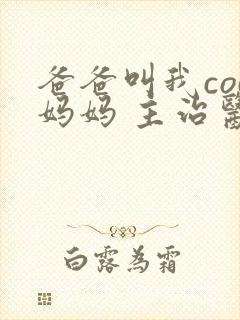 爸爸叫我co
妈妈 主治
白露為霜